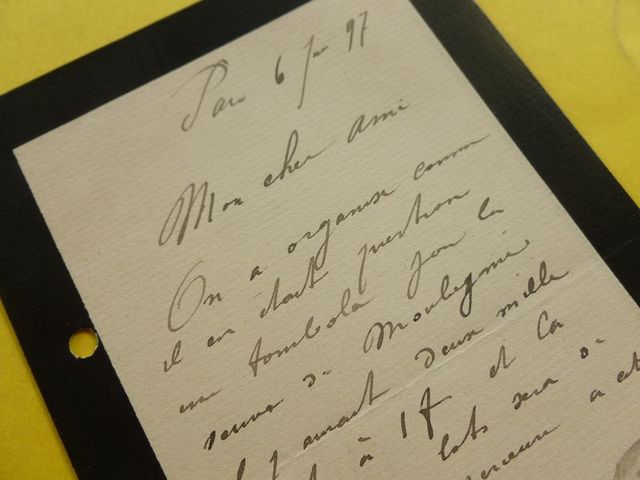 Paris 6 Juin 97
Mon cher ami
On a organisé comme
il en était question
une tombola pour la
veuve de
y aurait deux mille
à 1f et la
lots sera de
a été